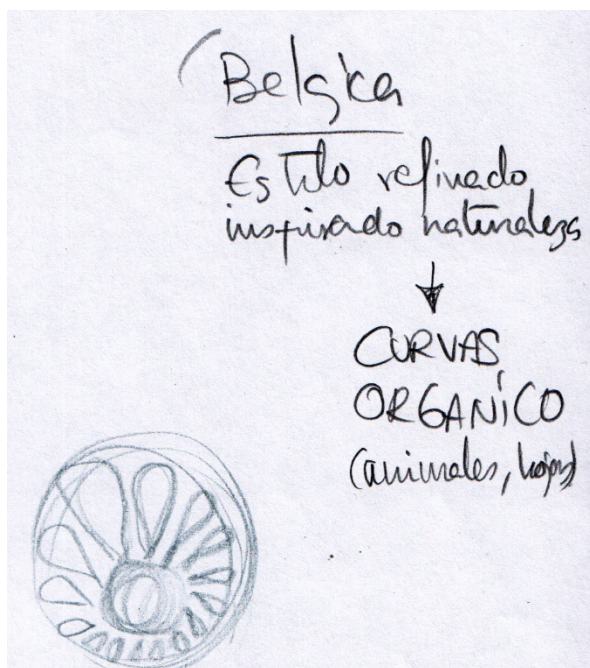 Belgica
Estilo refinado
inspirado naturaleza
CURVAS
ORGANICO
(animales, hojas)